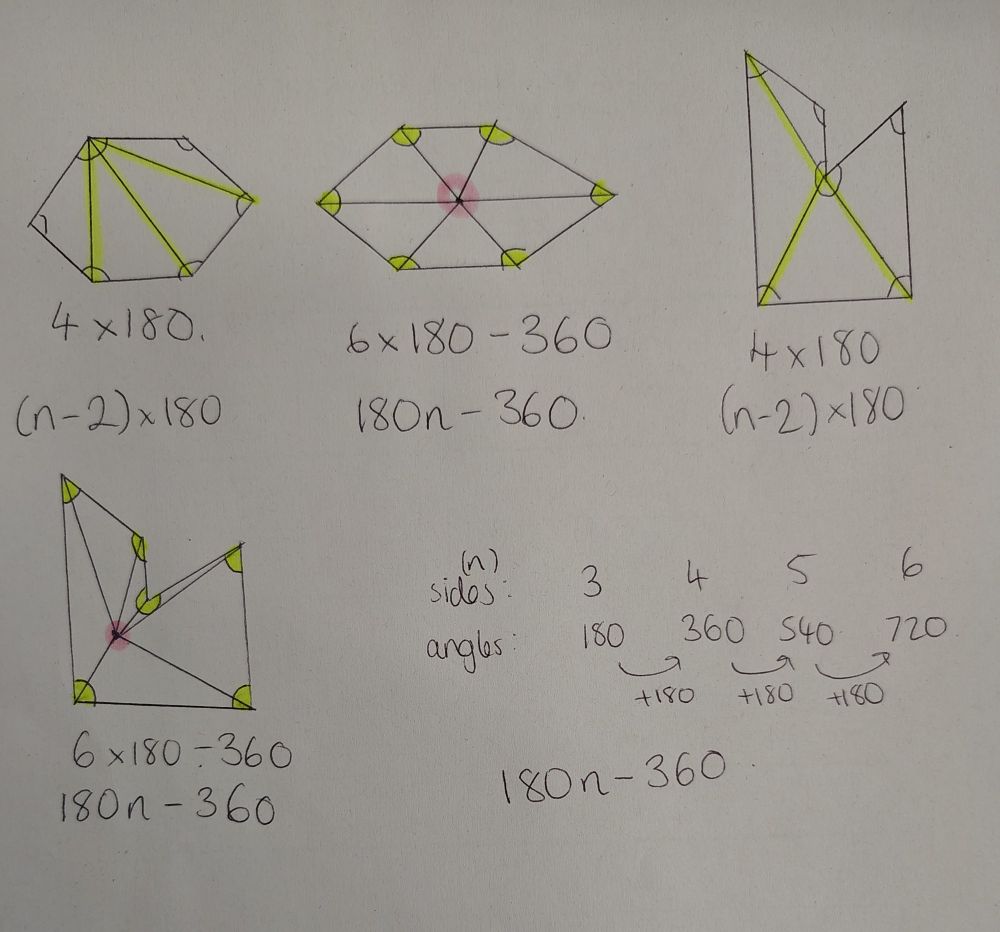 4 × 180.
(n-2)×180
6×180 - 360
180n - 360.
4 × 180
(n-2)×180
6 × 180 - 360
180n - 360
(n)
sides: 3 4 5 6
angles: 180 360 540 720
+180 +180 +180
180n - 360